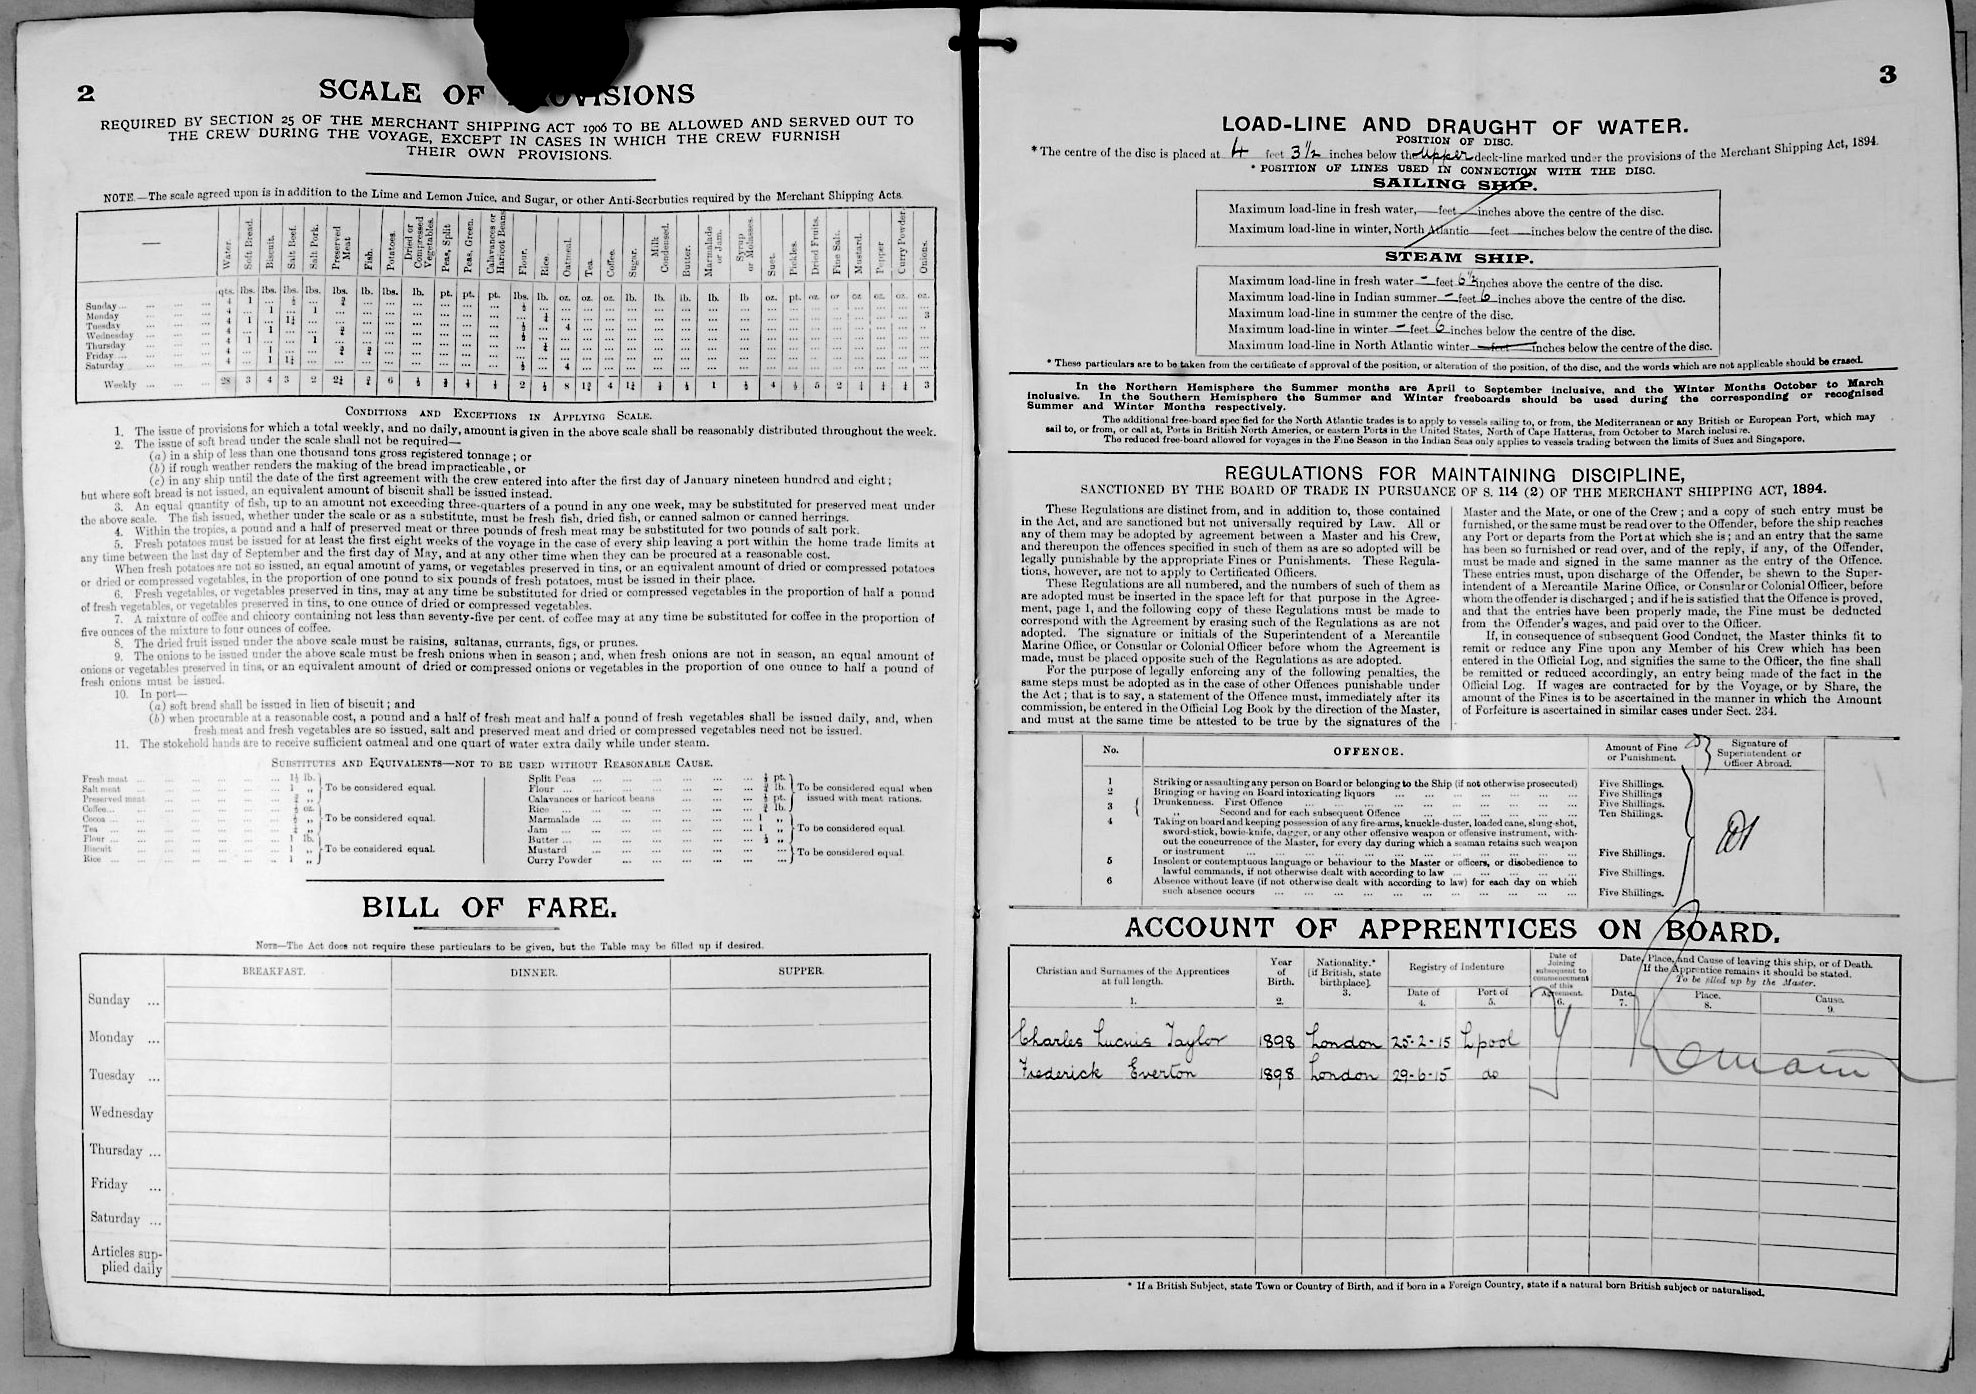 2
SCALE OF PROVISIONS
REQUIRED BY SECTION 25 OF THE MERCHANT SHIPPING ACT 1906 TO BE ALLOWED AND SERVED OUT TO
THE CREW DURING THE VOYAGE, EXCEPT IN CASES IN WHICH THE CREW FURNISH
THEIR OWN PROVISIONS.
NOTE.—The scale agreed upon is in addition to the Lime and Lemon Juice, and Sugar, or other Anti-Scorbutics required by the Merchant Shipping Acts.
— Water. Soft Bread. Biscuit. Salt Beef. Salt Pork. Preserved Meat Fish. Potatoes. Dried or Compressed Vegetables. Peas, Split Peas, Green. Calavances or Haricot Beans Flour. Rice. Oatmeal. Tea. Coffee. Sugar. Milk Condensed. Butter. Marmalade or Jam. Syrup or Molasses. Suet. Pickles. Dried Fruits. Fine Salt. Mustard. Pepper Curry Powder Onions.
qts. lbs. lbs. lbs. lbs. lbs. lbs. lbs. lb. pt. pt. pt. lbs. lb. oz. oz. oz. lb. lb. lb. lb. lb oz. pt. oz. oz oz oz. oz. oz.
Sunday... 4 1
Monday 4 1 1
Tuesday 4 1 1¼ 4
Wednesday 4 1
Thursday 4 1 1
Friday ... 4 1
Saturday 4 1 1¼ 4
Weekly 28 3 4 3 2 2¼ ¾ 6 ½ 2 ½ 8 1¾ 4 1¼ 1 ½ 4 ½ 5 2 ¼ ¼ ¼ 3
CONDITIONS AND EXCEPTIONS IN APPLYING SCALE.
1. The issue of provisions for which a total weekly, and no daily, amount is given in the above scale shall be reasonably distributed throughout the week.
2. The issue of soft bread under the scale shall not be required—
(a) in a ship of less than one thousand tons gross registered tonnage; or
(b) if rough weather renders the making of the bread impracticable, or
(c) in any ship until the date of the first agreement with the crew entered into after the first day of January nineteen hundred and eight;
but where soft bread is not issued, an equivalent amount of biscuit shall be issued instead.
3. An equal quantity of fish, up to an amount not exceeding three-quarters of a pound in any one week, may be substituted for preserved meat under
the above scale. The fish issued, whether under the scale or as a substitute, must be fresh fish, dried fish, or canned salmon or canned herrings.
4. Within the tropics, a pound and a half of preserved meat or three pounds of fresh meat may be substituted for two pounds of salt pork.
5. Fresh potatoes must be issued for at least the first eight weeks of the voyage in the case of every ship leaving a port within the home trade limits at
any time between the last day of September and the first day of May, and at any other time when they can be procured at a reasonable cost.
When fresh potatoes are not so issued, an equal amount of yams, or vegetables preserved in tins, or an equivalent amount of dried or compressed potatoes
or dried or compressed vegetables, in the proportion of one pound to six pounds of fresh potatoes, must be issued in their place.
6. Fresh vegetables, or vegetables preserved in tins, may at any time be substituted for dried or compressed vegetables in the proportion of half a pound
of fresh vegetables, or vegetables preserved in tins, to one ounce of dried or compressed vegetables.
7. A mixture of coffee and chicory containing not less than seventy-five per cent. of coffee may at any time be substituted for coffee in the proportion of
five ounces of the mixture to four ounces of coffee.
8. The dried fruit issued under the above scale must be raisins, sultanas, currants, figs, or prunes.
9. The onions to be issued under the above scale must be fresh onions when in season; and, when fresh onions are not in season, an equal amount of
onions or vegetables preserved in tins, or an equivalent amount of dried or compressed onions or vegetables in the proportion of one ounce to half a pound of
fresh onions must be issued.
10. In port—
(a) soft bread shall be issued in lieu of biscuit; and
(b) when procurable at a reasonable cost, a pound and a half of fresh meat and half a pound of fresh vegetables shall be issued daily, and, when
fresh meat and fresh vegetables are so issued, salt and preserved meat and dried or compressed vegetables need not be issued.
11. The stokehold hands are to receive sufficient oatmeal and one quart of water extra daily while under steam.
SUBSTITUTES AND EQUIVALENTS—NOT TO BE USED WITHOUT REASONABLE CAUSE.
Fresh meat 1½ lb.
Salt meat 1 „ To be considered equal.
Preserved meat ¾ „
Coffee... ½ oz.
Cocoa ... ½ „ To be considered equal.
Tea ... ¼ „
Flour ... 1 lb.
Biscuit 1 „ To be considered equal.
Rice ... 1 „
Split Peas
Flour ... To be considered equal when
Calavances or haricot beans issued with meat rations.
Rice
Marmalade 1 „
Jam 1 „ To be considered equal.
Butter ... ½ „
Mustard To be considered equal.
Curry Powder
BILL OF FARE.
NOTE—The Act does not require these particulars to be given, but the Table may be filled up if desired.
BREAKFAST. DINNER. SUPPER.
Sunday ...
Monday ...
Tuesday ...
Wednesday
Thursday ...
Friday ...
Saturday ...
Articles sup-
plied daily
3
LOAD-LINE AND DRAUGHT OF WATER.
POSITION OF DISC.
* The centre of the disc is placed at 4 feet 3½ inches below the Upper deck-line marked under the provisions of the Merchant Shipping Act, 1894.
* POSITION OF LINES USED IN CONNECTION WITH THE DISC.
SAILING SHIP.
Maximum load-line in fresh water,—feet—inches above the centre of the disc.
Maximum load-line in winter, North Atlantic—feet—inches below the centre of the disc.
STEAM SHIP.
Maximum load-line in fresh water — feet 6½ inches above the centre of the disc.
Maximum load-line in Indian summer — feet 6 inches above the centre of the disc.
Maximum load-line in summer the centre of the disc.
Maximum load-line in winter — feet 6 inches below the centre of the disc.
Maximum load-line in North Atlantic winter — feet — inches below the centre of the disc.
* These particulars are to be taken from the certificate of approval of the position, or alteration of the position, of the disc, and the words which are not applicable should be erased.
In the Northern Hemisphere the Summer months are April to September inclusive, and the Winter Months October to March
inclusive. In the Southern Hemisphere the Summer and Winter freeboards should be used during the corresponding or recognised
Summer and Winter Months respectively.
The additional free-board specified for the North Atlantic trades is to apply to vessels sailing to, or from, the Mediterranean or any British or European Port, which may
sail to, or from, or call at, Ports in British North America, or eastern Ports in the United States, North of Cape Hatteras, from October to March inclusive.
The reduced free-board allowed for voyages in the Fine Season in the Indian Seas only applies to vessels trading between the limits of Suez and Singapore.
REGULATIONS FOR MAINTAINING DISCIPLINE,
SANCTIONED BY THE BOARD OF TRADE IN PURSUANCE OF S. 114 (2) OF THE MERCHANT SHIPPING ACT, 1894.
These Regulations are distinct from, and in addition to, those contained
in the Act, and are sanctioned but not universally required by Law. All or
any of them may be adopted by agreement between a Master and his Crew,
and thereupon the offences specified in such of them as are so adopted will be
legally punishable by the appropriate Fines or Punishments. These Regula-
tions, however, are not to apply to Certificated Officers.
These Regulations are all numbered, and the numbers of such of them as
are adopted must be inserted in the space left for that purpose in the Agree-
ment, page 1, and the following copy of these Regulations must be made to
correspond with the Agreement by erasing such of the Regulations as are not
adopted. The signature or initials of the Superintendent of a Mercantile
Marine Office, or Consular or Colonial Officer before whom the Agreement is
made, must be placed opposite such of the Regulations as are adopted.
For the purpose of legally enforcing any of the following penalties, the
same steps must be adopted as in the case of other Offences punishable under
the Act; that is to say, a statement of the Offence must, immediately after its
commission, be entered in the Official Log Book by the direction of the Master,
and must at the same time be attested to be true by the signatures of the
Master and the Mate, or one of the Crew; and a copy of such entry must be
furnished, or the same must be read over to the Offender, before the ship reaches
any Port or departs from the Port at which she is; and an entry that the same
has been so furnished or read over, and of the reply, if any, of the Offender,
must be made and signed in the same manner as the entry of the Offence.
These entries must, upon discharge of the Offender, be shewn to the Super-
intendent of a Mercantile Marine Office, or Consular or Colonial Officer, before
whom the offender is discharged; and if he is satisfied that the Offence is proved,
and that the entries have been properly made, the Fine must be deducted
from the Offender's wages, and paid over to the Officer.
If, in consequence of subsequent Good Conduct, the Master thinks fit to
remit or reduce any Fine upon any Member of his Crew which has been
entered in the Official Log, and signifies the same to the Officer, the fine shall
be remitted or reduced accordingly, an entry being made of the fact in the
Official Log. If wages are contracted for by the Voyage, or by Share, the
amount of the Fines is to be ascertained in the manner in which the Amount
of Forfeiture is ascertained in similar cases under Sect. 234.
No. OFFENCE. Amount of Fine or Punishment. Signature of Superintendent or Officer Abroad.
1 Striking or assaulting any person on Board or belonging to the Ship (if not otherwise prosecuted) Five Shillings.
2 Bringing or having on Board intoxicating liquors Five Shillings
3 Drunkenness. First Offence Five Shillings.
„ Second and for each subsequent Offence Ten Shillings.
4 Taking on board and keeping possession of any fire-arms, knuckle-duster, loaded cane, slung-shot,
sword-stick, bowie-knife, dagger, or any other offensive weapon or offensive instrument, with-
out the concurrence of the Master, for every day during which a seaman retains such weapon
or instrument Five Shillings.
5 Insolent or contemptuous language or behaviour to the Master or officers, or disobedience to
lawful commands, if not otherwise dealt with according to law Five Shillings.
6 Absence without leave (if not otherwise dealt with according to law) for each day on which
such absence occurs Five Shillings.
ACCOUNT OF APPRENTICES ON BOARD.
Christian and Surnames of the Apprentices at full length. 1. Year of Birth. 2. Nationality.* [if British, state birthplace]. 3. Registry of Indenture Date of 4. Port of 5. Date of Joining subsequent to commencement of this Agreement. 6. Date, Place, and Cause of leaving this ship, or of Death. If the Apprentice remains it should be stated. To be filled up by the Master. Date. 7. Place. 8. Cause. 9.
Charles Lucius Taylor 1898 London 25-2-15 Lpool
Frederick Everton 1898 London 29-6-15 do
Remain
* If a British Subject, state Town or Country of Birth, and if born in a Foreign Country, state if a natural born British subject or naturalised.